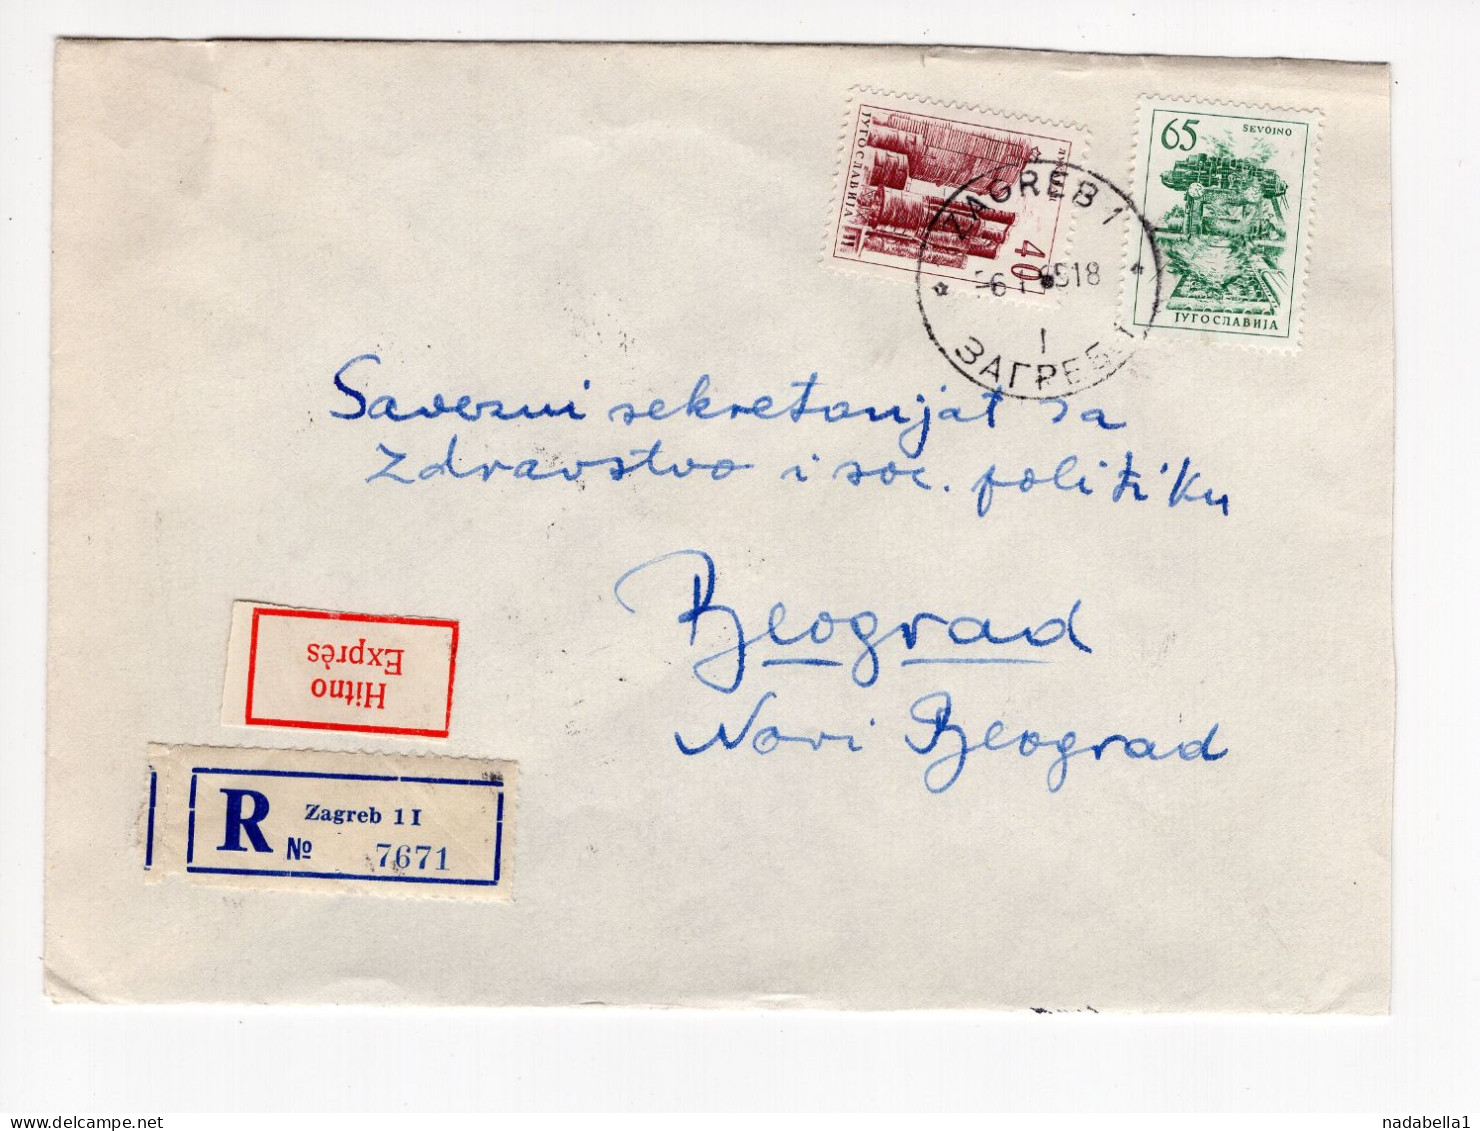 ЈУГОСЛАВИЈА
40
65
SEVOJNO
ЈУГОСЛАВИЈА
ZAGREB 1
18
I
ЗАГРЕБ 1
Savezni sekretarijat za
Zdravstvo i soc. politiku
Beograd
Novi Beograd
Hitno
Exprès
R Zagreb 1 I
№ 7671
nadabella1